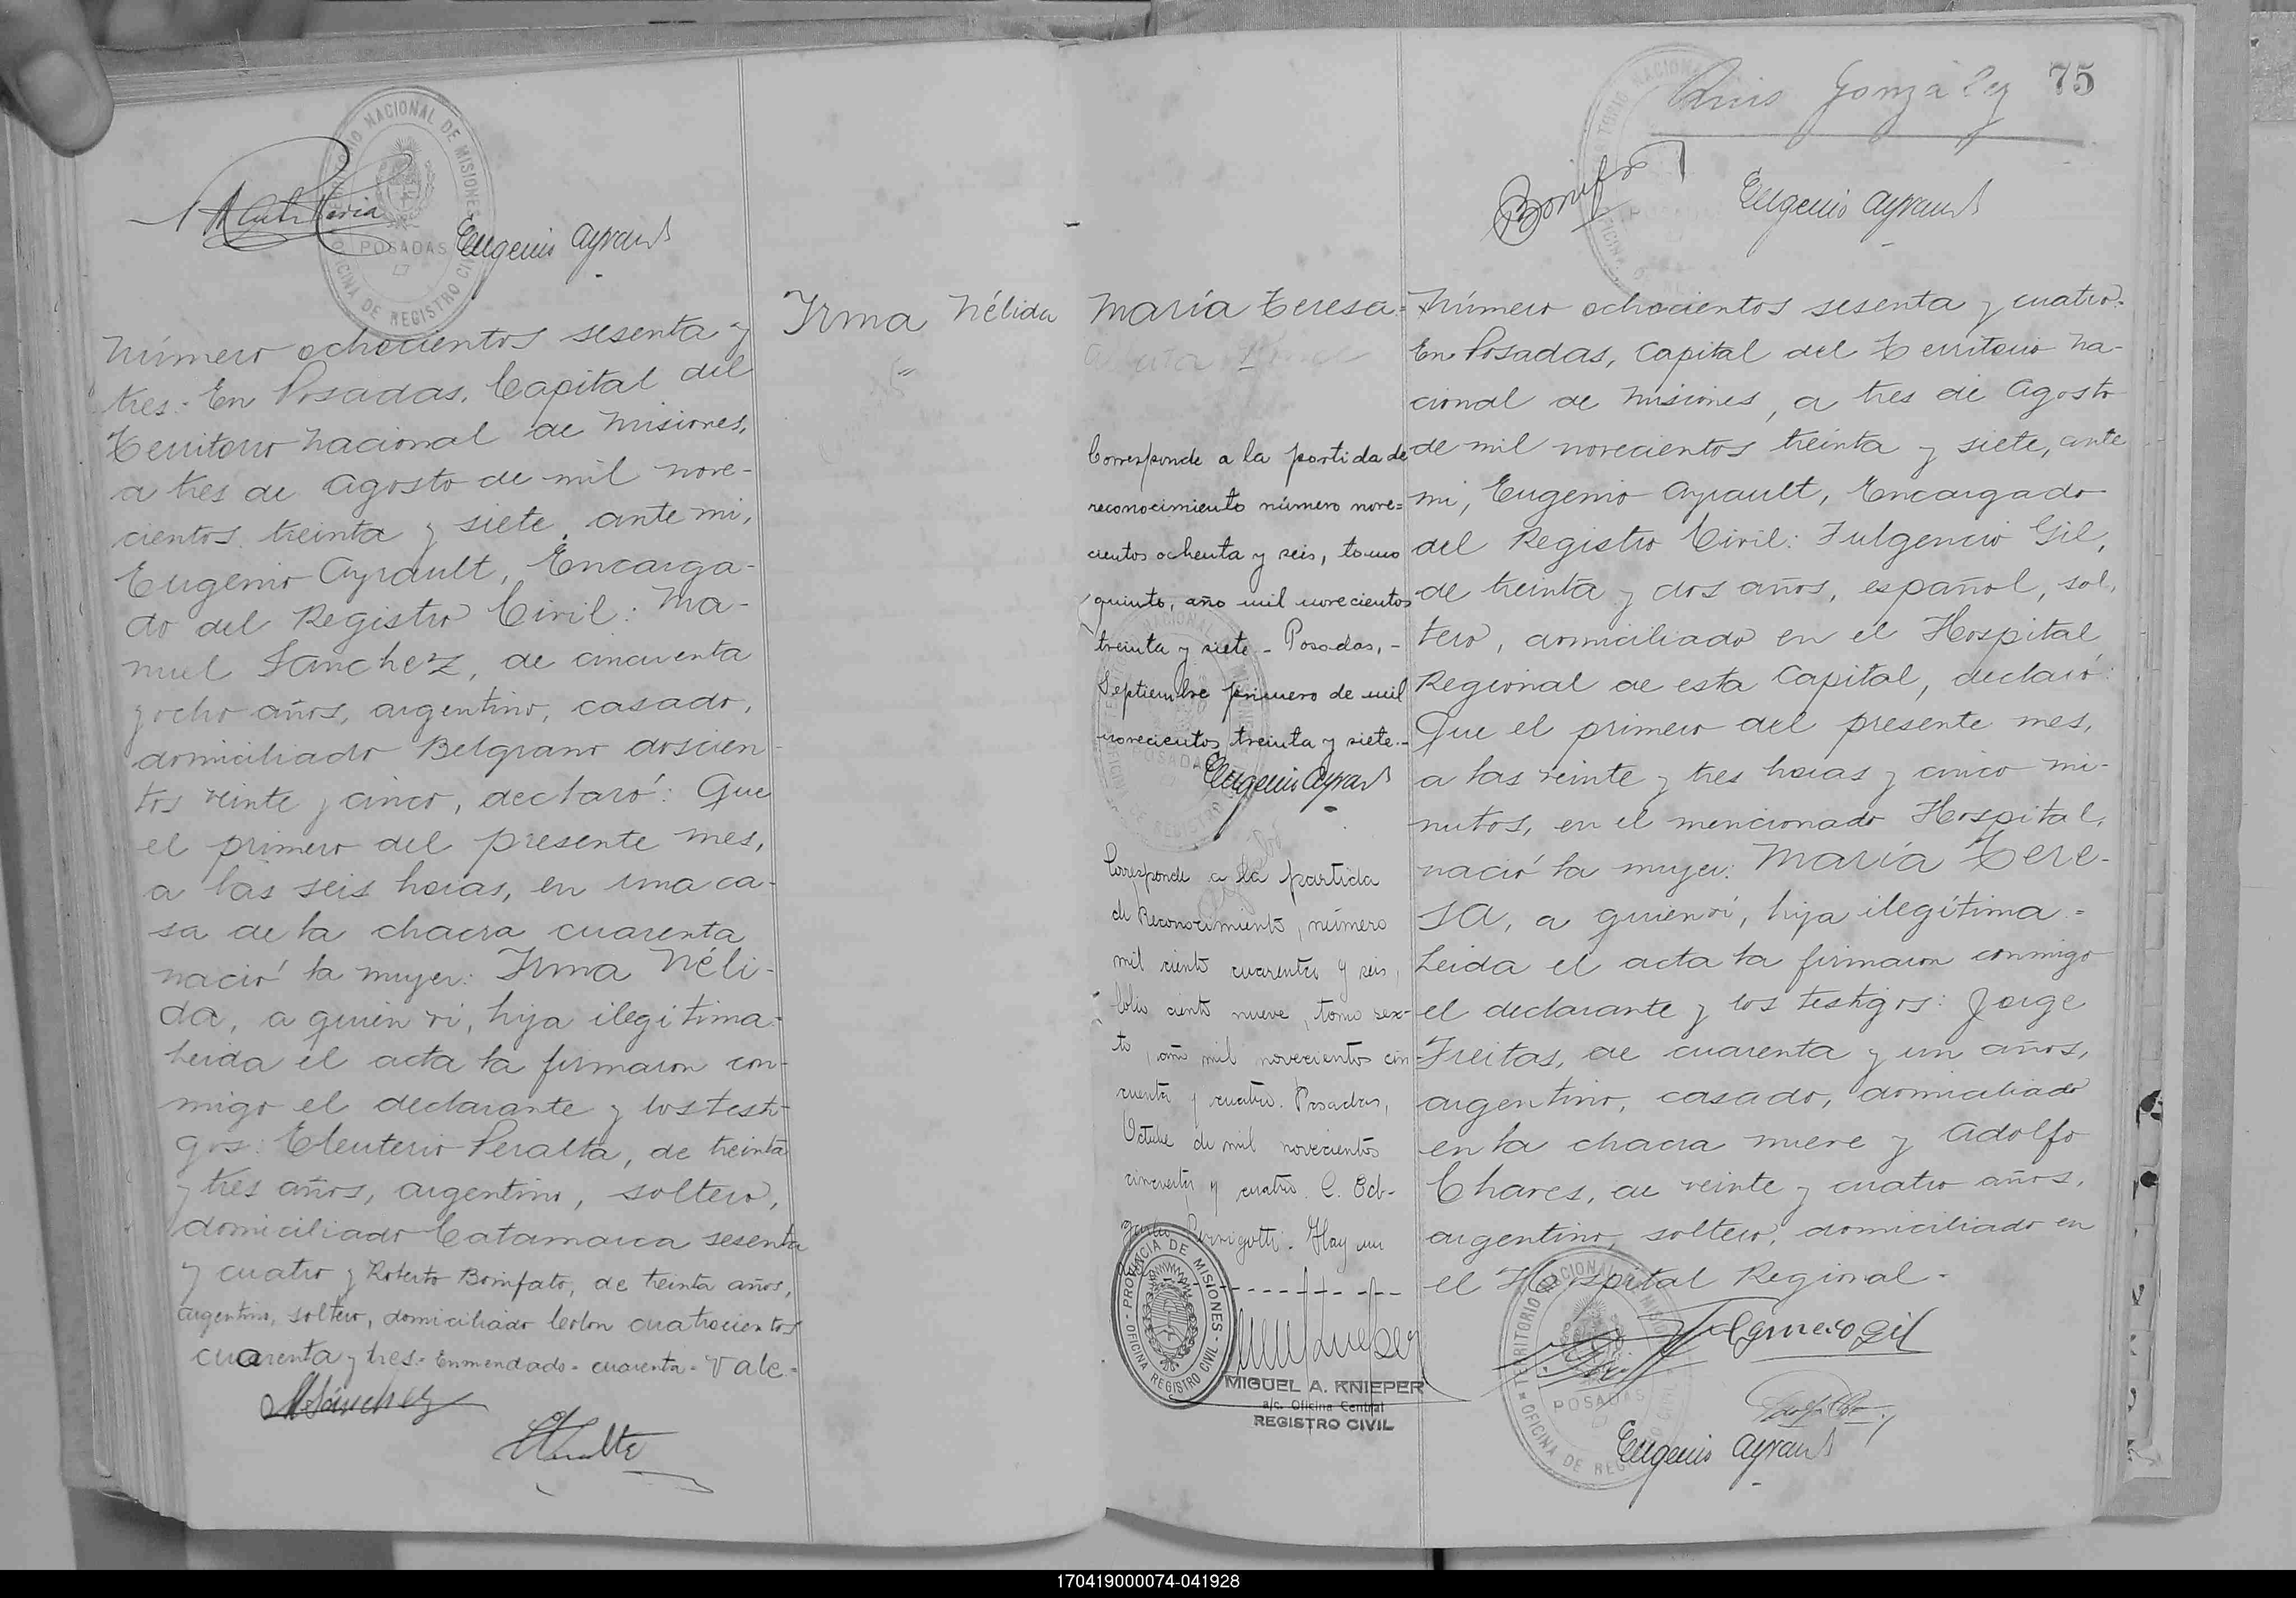 TERRITORIO NACIONAL DE MISIONES
POSADAS
OFICINA DE REGISTRO CIVIL
Eugenio Ayrault
Número ochocientos sesenta y
tres.- En Posadas, Capital del
Territorio Nacional de Misiones,
a tres de Agosto de mil nove-
cientos treinta y siete, ante mi,
Eugenio Ayrault, Encarga-
do del Registro Civil: Ma-
nuel Sánchez, de cincuenta
y ocho años, argentino, casado,
domiciliado Belgrano doscien-
tos veinte y cinco, declaró: Que
el primero del presente mes,
a las seis horas, en una ca-
sa de la chacra cuarenta
nació la mujer: Irma Néli-
da, a quien vi, hija ilegítima.-
Leida el acta la firmaron con-
migo el declarante y los testi-
gos: Eleuterio Peralta, de treinta
y tres años, argentino, soltero,
domiciliado Catamarca sesenta
y cuatro y Roberto Bonifato, de treinta años,
argentino, soltero, domiciliado Colon cuatrocientos
cuarenta y tres.- Enmendado - cuarenta - Vale.-
M Sánchez
Irma Nélida
75
Luis González
Eugenio Ayrault
María Teresa.=
Corresponde a la partida de
reconocimiento número nove=
cientos ochenta y seis, tomo
quinto, año mil novecientos
treinta y siete - Posadas, -
Septiembre primero de mil
novecientos treinta y siete.-
Eugenio Ayrault
Corresponde a la partida
de Reconocimiento, número
mil ciento cuarenta y seis,
folio ciento nueve, tomo sex-
to, año mil novecientos cin-
cuenta y cuatro. Posadas,
Octubre de mil novecientos
cincuenta y cuatro. C. Oct-
Hay un
PROVINCIA DE MISIONES
OFICINA REGISTRO CIVIL
MIGUEL A. KNIEPER
a/c. Oficina Central
REGISTRO CIVIL
Número ochocientos sesenta y cuatro.-
En Posadas, Capital del Territorio Na-
cional de Misiones, a tres de Agosto
de mil novecientos treinta y siete, ante
mi, Eugenio Ayrault, Encargado
del Registro Civil: Fulgencio Gil,
de treinta y dos años, español, sol-
tero, domiciliado en el Hospital
Regional de esta Capital, declaró:
Que el primero del presente mes,
a las veinte y tres horas y cinco mi-
nutos, en el mencionado Hospital,
nació la mujer: María Tere-
sa, a quien vi, hija ilegítima.=
Leida el acta la firmaron conmigo
el declarante y los testigos: Jorge
Freitas, de cuarenta y un años,
argentino, casado, domiciliado
en la chacra nueve y Adolfo
Chaves, de veinte y cuatro años,
argentino, soltero, domiciliado en
el Hospital Regional.-
Fulgencio Gil
TERRITORIO NACIONAL DE MISIONES
POSADAS
OFICINA DE REGISTRO CIVIL
Eugenio Ayrault
170419000074-041928